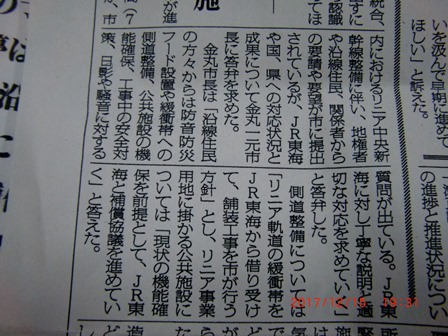 いを汲んで早期に進めて
ほしい」と訴えた。
の進捗と推進状況につい
内におけるリニア中央新
幹線整備に伴い、地権者
や沿線住民、関係者から
の要請や要望が市に提出
されているが、JR東海
や国、県への対応状況と
成果について金丸一元市
長に答弁を求めた。
金丸市長は「沿線住民
の方々からは防音防災
フード設置や緩衝帯への
側道整備、公共施設の機
能確保、工事中の安全対
策、日影や騒音に対する
質問が出ている。JR東
海に対し丁寧な説明と適
切な対応を求めていく」
と答弁した。
側道整備については
「リニア軌道の緩衝帯を
JR東海から借り受け
て、舗装工事を市が行う
方針」とし、リニア事業
用地に掛かる公共施設に
ついては「現状の機能確
保を前提として、JR東
海と補償協議を進めてい
く」と答えた。